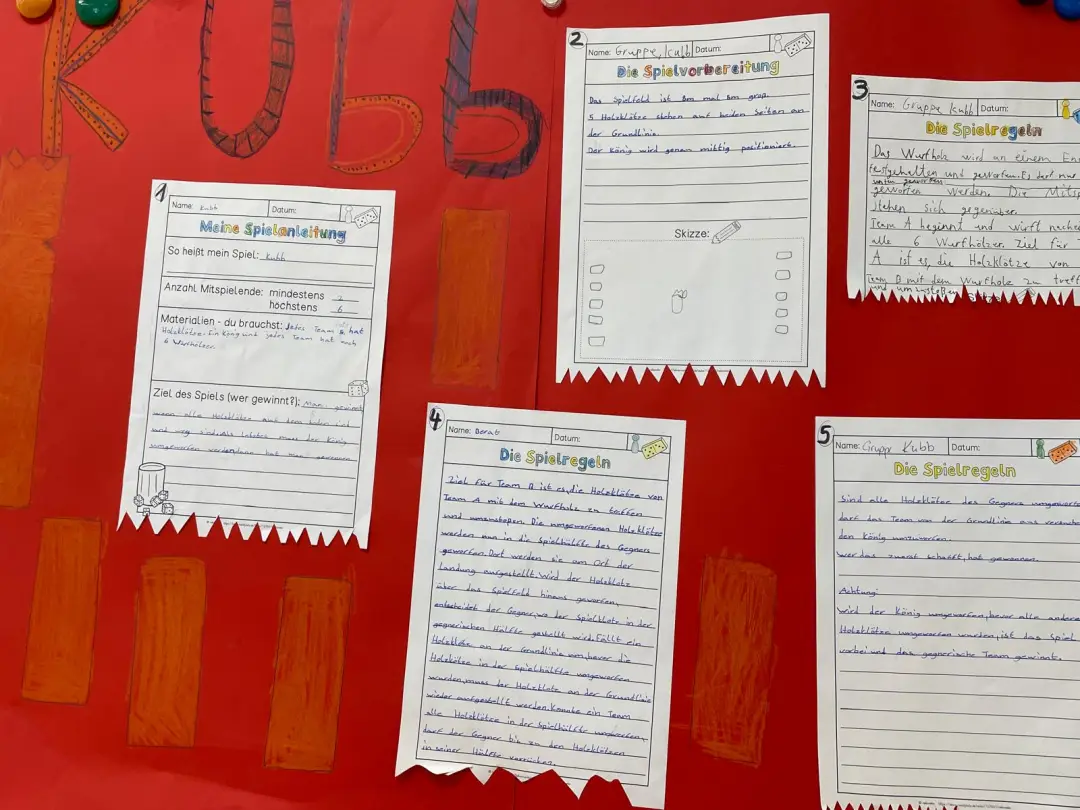 Kubb
1
Name: Kubb Datum:
Meine Spielanleitung
So heißt mein Spiel: Kubb
Anzahl Mitspielende: mindestens 2
höchstens 6
Materialien - du brauchst: Jedes Team hat
Holzklötze. Ein König und jedes Team hat noch
6 Wurfhölzer.
Ziel des Spiels (wer gewinnt?): Man gewinnt
wenn alle Holzklötze auf dem Boden sind
und weg sind. Als letztes muss der König
umgeworfen werden, dann hat man gewonnen
2
Name: Gruppe, kubb Datum:
Die Spielvorbereitung
Das Spielfeld ist 8m mal 5m groß.
5 Holzklötze stehen auf beiden Seiten an
der Grundlinie.
Der König wird genau mittig positioniert.
Skizze:
3
Name: Gruppe kubb Datum:
Die Spielregeln
Das Wurfholz wird an einem
festgehalten und geworfen. Es darf nur
unten geworfen
geworfen werden. Die
stehen sich gegenüber.
Team A beginnt und wirft
alle 6 Wurfhölzer. Ziel für
A ist es, die Holzklötze von
Team B mit dem Wurfholz zu
und umzustoßen
4
Name: Berat Datum:
Die Spielregeln
Ziel für Team B ist es, die Holzklötze von
Team A mit dem Wurfholz zu treffen
und umzustopen. Die umgeworfenen Holzklötze
werden nun in die Spielhälfte des Gegners
geworfen. Dort werden sie am Ort der
Landung aufgestellt. Wird der Holzklotz
über das Spielfeld hinaus geworfen,
entscheidet der Gegner, wo der Spielklotz in der
gegnerischen Hälfte gestellt wird. Fällt ein
Holzklotz an der Grundlinie um, bevor die
Holzklötze in der Spielhälfte umgeworfen
wurden, muss der Holzklotz an der Grundlinie
wieder aufgestellt werden. Konnte ein Team
alle Holzklötze in der Spielhälfte umwerfen,
darf der Gegner bis zu den Holzklötzen
in seiner Hälfte vorrücken.
5
Name: Gruppe Kubb Datum:
Die Spielregeln
Sind alle Holzklötze des Gegners
darf das Team von der Grundlinie aus
den König umzuwerfen.
Wer das zuerst schafft, hat gewonnen.
Achtung:
Wird der König umgeworfen, bevor alle
Holzklötze umgeworfen wurden, ist das Spiel
vorbei und das gegnerische Team gewinnt.